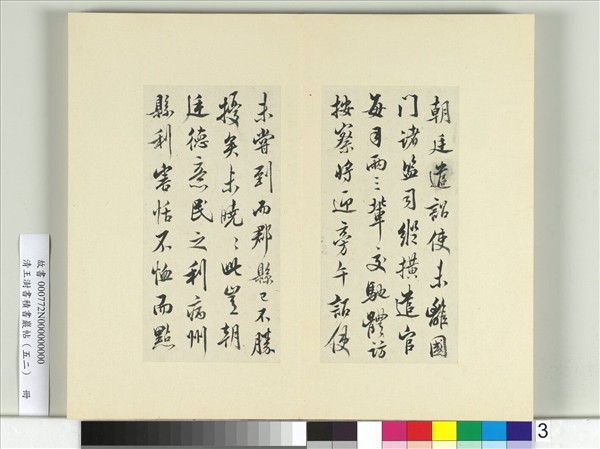 朝廷遣詔使未離國
门诸监司縱横遣官
每月兩三輩交馳體访
按察將迎旁午詔使
未嘗到而郡縣已不勝
擾矣未曉曉此豈朝
廷德意民之利病州
縣利害恬不恤而點
故書 000772N000000000
清王澍書積書巖帖（五二） 冊
3